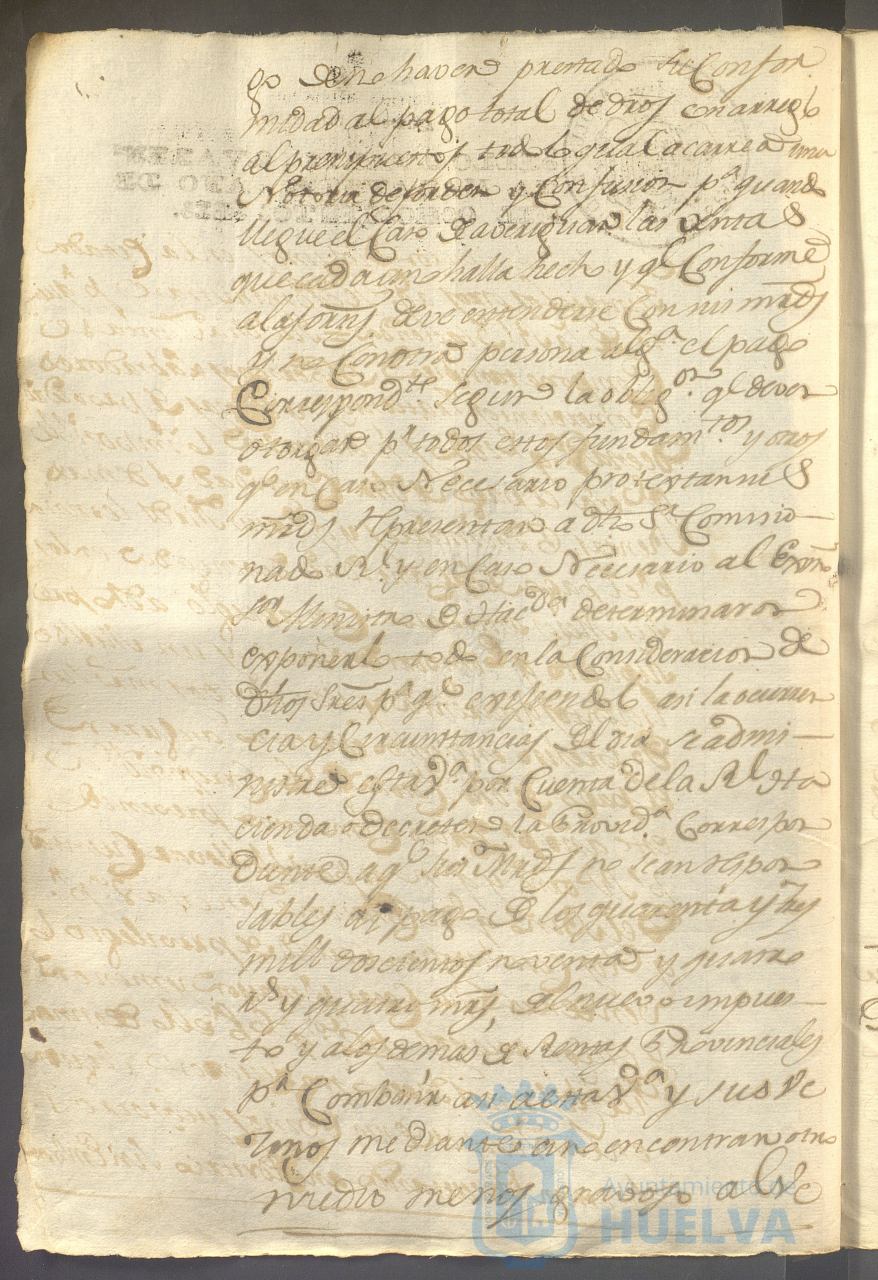 go de no haver prestado su Confor
midad al pago total de dros con arreglo
al presupuestos todo lo qual acarrea una
Notoria desorden y Confusion pa quando
llegue el Caso de averiguar las ventas
que cada uno halla hecho y qe Conforme
a las ordns. deve entenderse Con sus mrds
y no Con otra persona alga. el pago
Correspondte segun la obligon. qe deven
otorgar pr todos estos fundamtos. y otros
qe en Caso Necesario protextan sus
mrds representar a dho Sr Comisio-
nado Rl. y en Caso Necesario al Exmo
Sor Ministro de Hacda determinaron
exponerlo todo en la Consideracion de
dhos Sres pa qe. atendiendo asi la ocurren
cia y Circunstancias del dia se admi-
nistre esta Va por Cuenta de la Rl Ha
cienda o decreten la Provida. Correspon
diente a qe sus Mrds no sean respon
sables al pago de los quarenta y tres
mill doscientos noventa y quatro
rs y quatro mrs, del nuevo impues-
to y a los demas de Rentas Provinciales
pa Combinar asi a esta Va y sus Ve
zinos mediante a no encontrar otro
medio menos gravoso al Ve
Ayuntamiento de
HUELVA